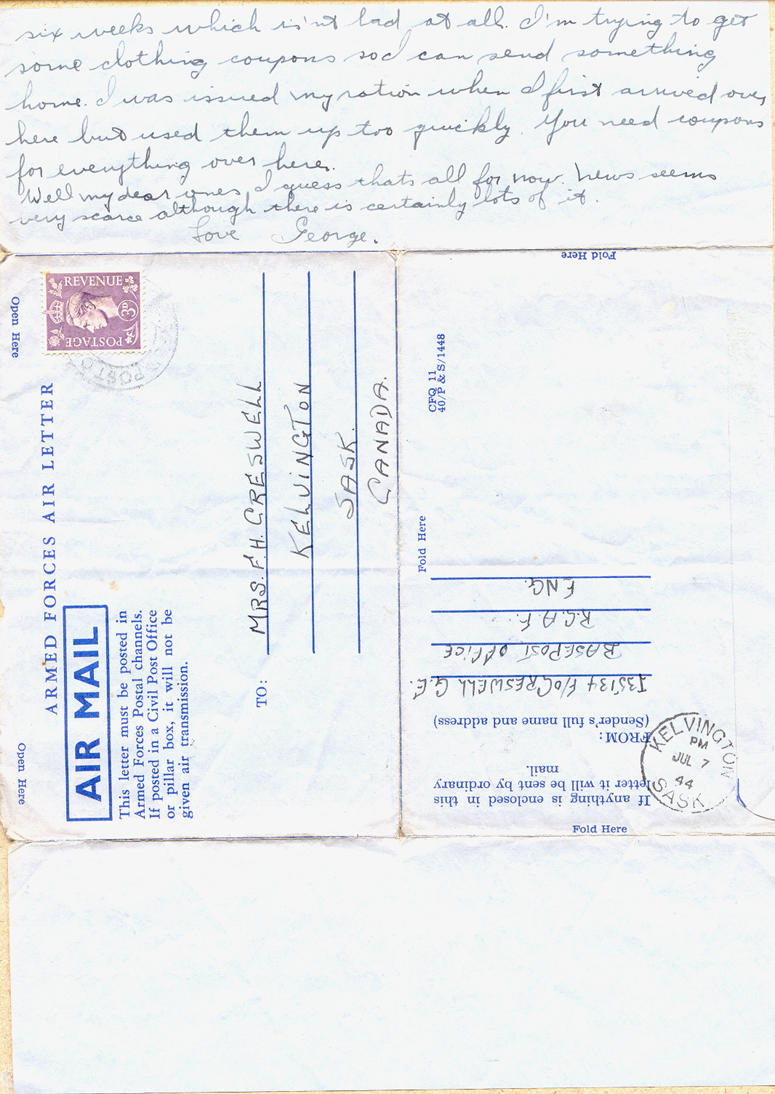 six weeks which is'nt bad at all. I'm trying to get
some clothing coupons so I can send something
home. I was issued my ration when I first arrived over
here but used them up too quickly. You need coupons
for everything over here.
Well my dear ones, I guess thats all for now. News seems
very scarce although there is certainly lots of it.
Love George.
Open Here
Open Here
REVENUE
POSTAGE
3D
ARMED FORCES AIR LETTER
AIR MAIL
This letter must be posted in
Armed Forces Postal channels.
If posted in a Civil Post Office
or pillar box, it will not be
given air transmission.
TO:
MRS. F. H. CRESWELL
KELVINGTON
SASK.
CANADA.
Fold Here
CFQ 11
40/P & S/1448
Fold Here
If anything is enclosed in this
letter it will be sent by ordinary
mail.
FROM:
(Sender's full name and address)
J35134 F/O CRESWELL G.E.
BASE POST OFFICE
R.C.A.F.
ENG.
KELVINGTON
PM
JUL 7
44
SASK
Fold Here